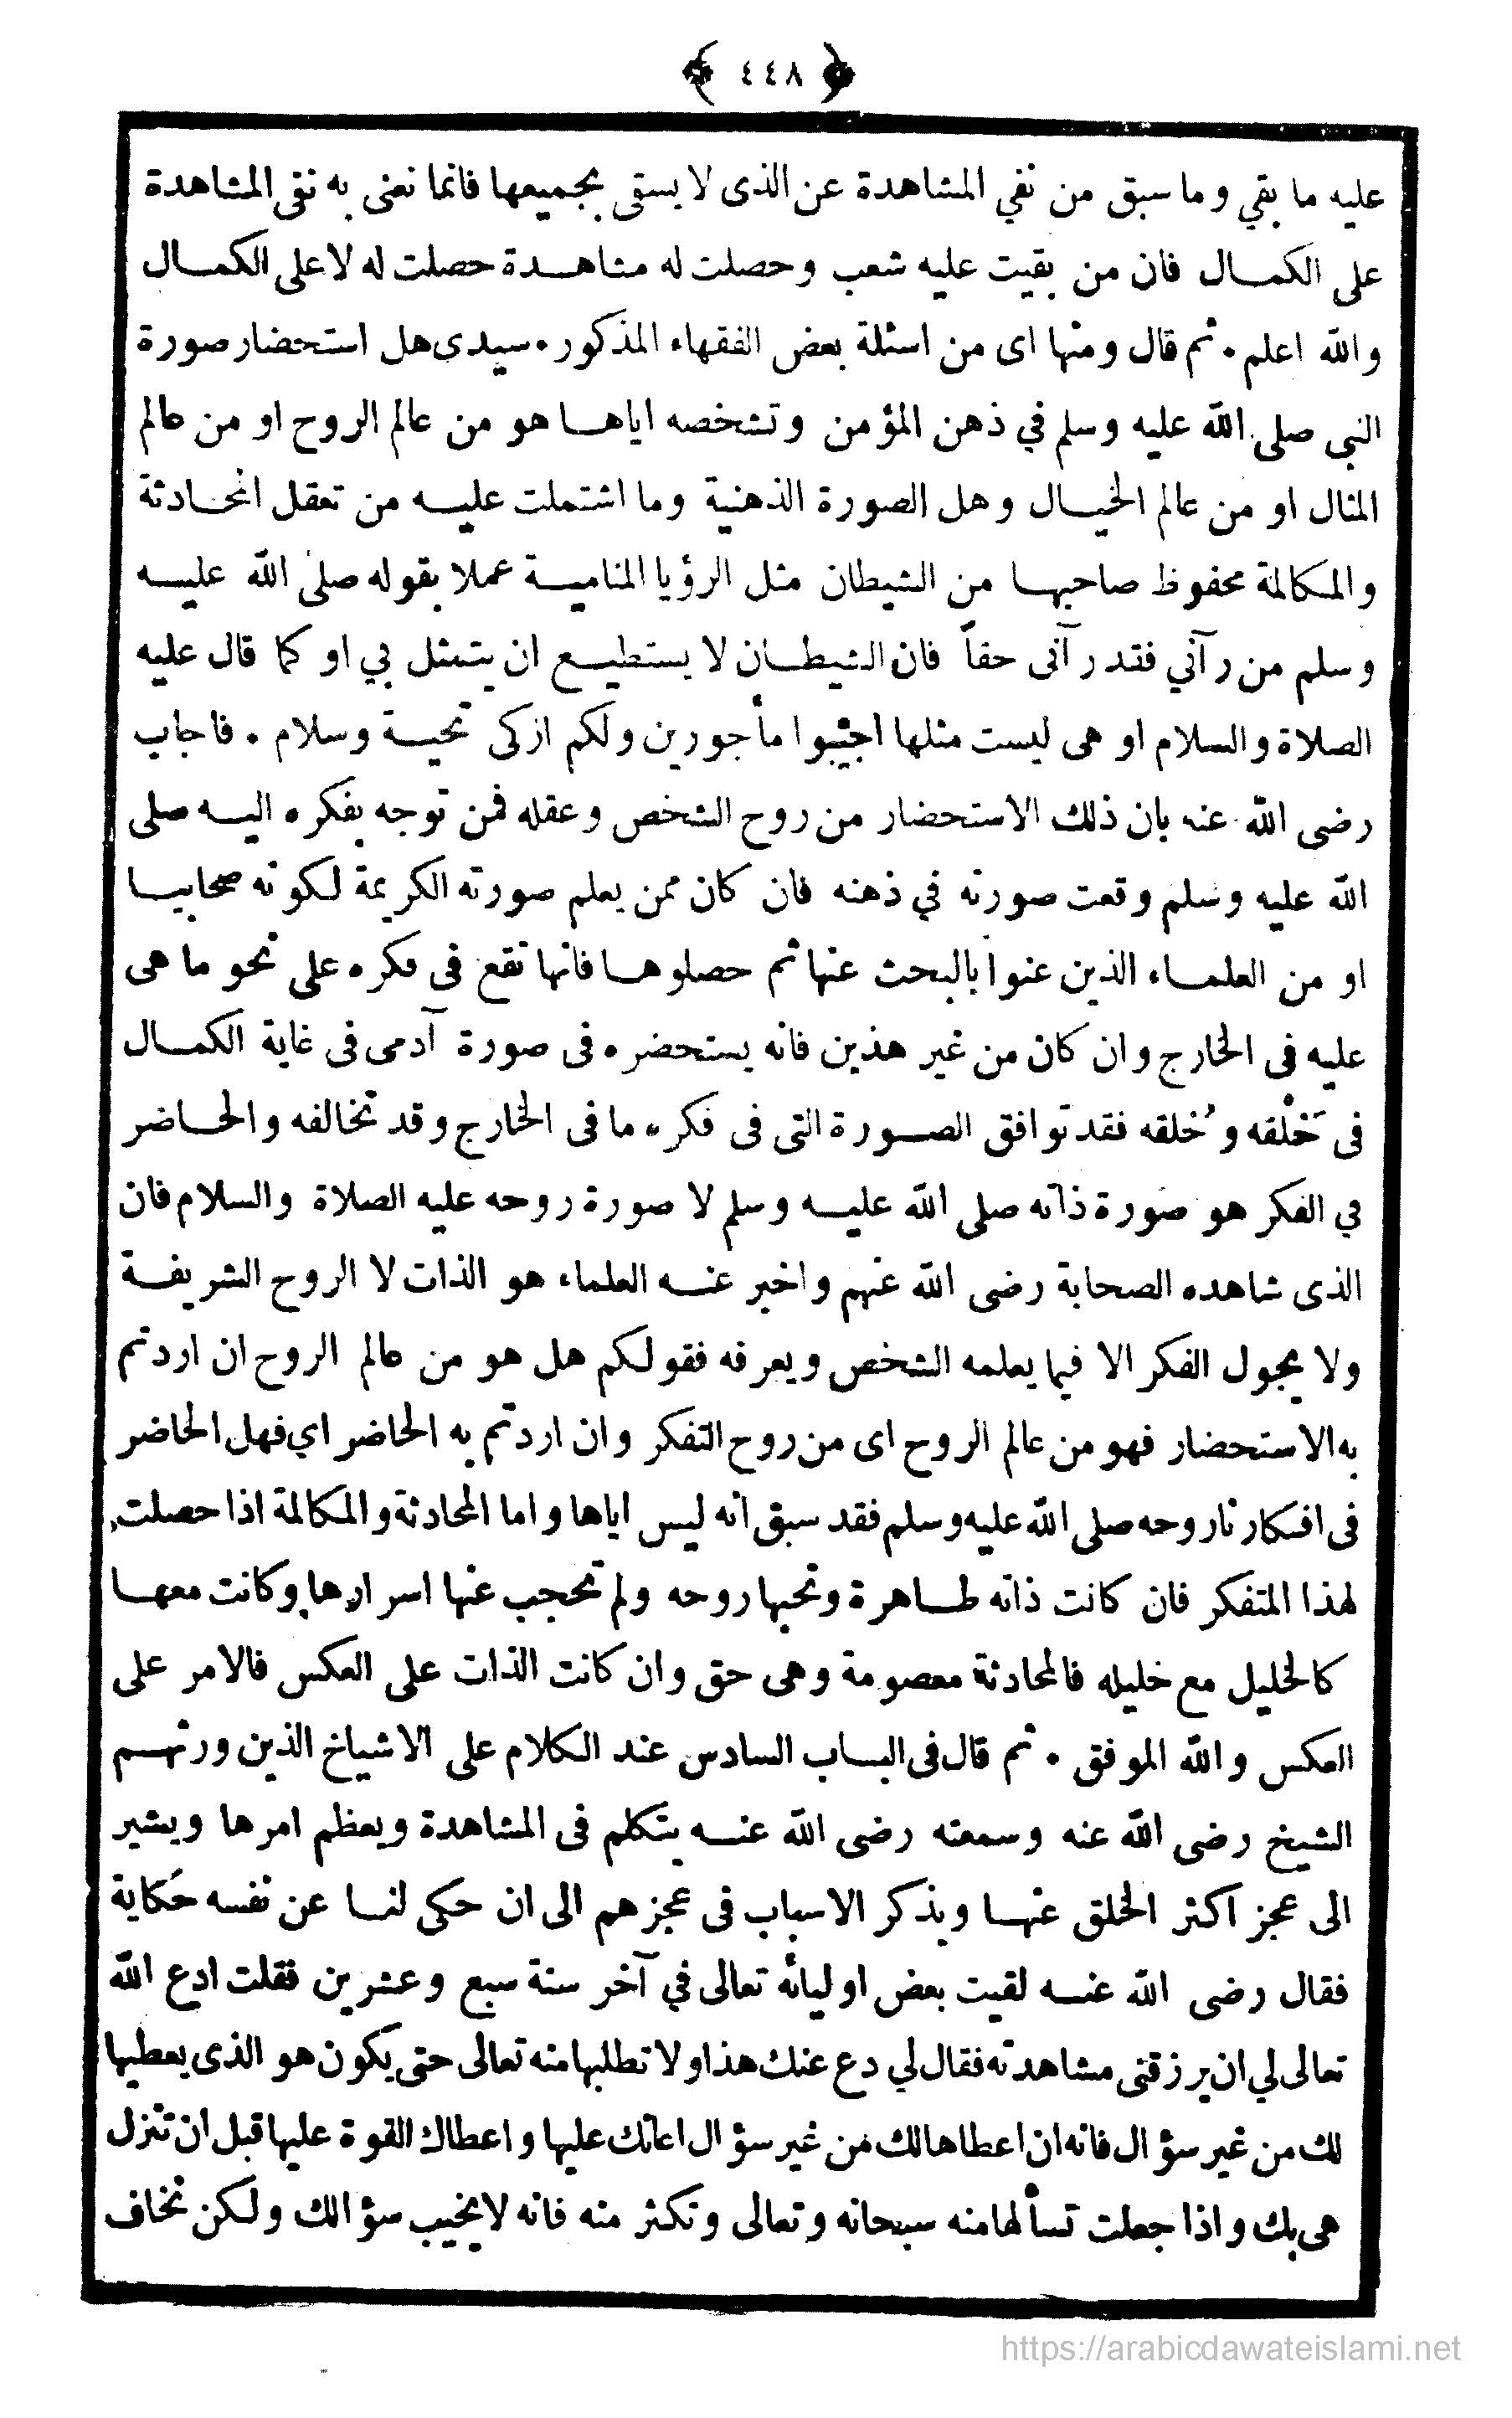 ﴿ ٤٤٨ ﴾
عليه ما بقي وما سبق من نفي المشاهدة عن الذى لا يسقى بجميعها فانما نعنى به نفى المشاهدة
على الكمال فان من بقيت عليه شعب وحصلت له مشاهدة حصلت له لا على الكمال
والله اعلم • ثم قال ومنها اى من اسئلة بعض الفقهاء المذكور • سيدى هل استحضار صورة
النبى صلى الله عليه وسلم في ذهن المؤمن وتشخصه اياها هو من عالم الروح او من عالم
المثال او من عالم الخيال وهل الصورة الذهنية وما اشتملت عليه من تعقل المحادثة
والمكالمة محفوظ صاحبها من الشيطان مثل الرؤيا المنامية عملا بقوله صلى الله عليه
وسلم من رآني فقد رآنى حقاً فان الشيطان لا يستطيع ان يتمثل بي او كما قال عليه
الصلاة والسلام او هى ليست مثلها اجيبوا مأجورين ولكم ازكى تحية وسلام • فاجاب
رضى الله عنه بان ذلك الاستحضار من روح الشخص وعقله فمن توجه بفكره اليه صلى
الله عليه وسلم وقعت صورته في ذهنه فان كان ممن يعلم صورته الكريمة لكونه صحابيا
او من العلماء الذين عنوا بالبحث عنها ثم حصلوها فانها تقع فى فكره على نحو ما هى
عليه فى الخارج وان كان من غير هذين فانه يستحضره فى صورة آدمى فى غاية الكمال
فى خَلْقه وخُلقه فقد توافق الصورة التى فى فكره ما فى الخارج وقد تخالفه والحاضر
في الفكر هو صورة ذاته صلى الله عليه وسلم لا صورة روحه عليه الصلاة والسلام فان
الذى شاهده الصحابة رضى الله عنهم واخبر عنه العلماء هو الذات لا الروح الشريفة
ولا يجول الفكر الا فيما يعلمه الشخص ويعرفه فقولكم هل هو من عالم الروح ان اردتم
به الاستحضار فهو من عالم الروح اى من روح التفكر وان اردتم به الحاضر اي فهل الحاضر
فى افكارنا روحه صلى الله عليه وسلم فقد سبق انه ليس اياها واما المحادثة والمكالمة اذا حصلت
لهذا المتفكر فان كانت ذاته طاهرة وتحبها روحه ولم تحجب عنها اسرارها وكانت معها
كالخليل مع خليله فالمحادثة معصومة وهى حق وان كانت الذات على العكس فالامر على
العكس والله الموفق • ثم قال فى الباب السادس عند الكلام على الاشياخ الذين ورثهم
الشيخ رضى الله عنه وسمعته رضى الله عنه يتكلم فى المشاهدة ويعظم امرها ويشير
الى عجز اكثر الخلق عنها ويذكر الاسباب فى عجزهم الى ان حكى لنا عن نفسه حكاية
فقال رضى الله عنه لقيت بعض اوليائه تعالى في آخر سنة سبع وعشرين فقلت ادع الله
تعالى لي ان يرزقنى مشاهدته فقال لي دع عنك هذا ولا تطلبها منه تعالى حتى يكون هو الذى يعطيها
لك من غير سؤال فانه ان اعطاها لك من غير سؤال اعانك عليها واعطاك القوة عليها قبل ان تنزل
هى بك واذا جعلت تسألها منه سبحانه وتعالى وتكثر منه فانه لا يخيب سؤالك ولكن نخاف
https://arabicdawateislami.net